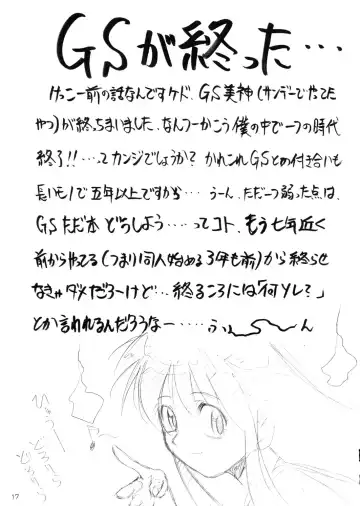 GSが終った…
けっこー前の話なんですケド、GS美神(サンデーでやってた
やつ)が終っちまいました、なんつーかこう僕の中で一つの時代
終了!!…ってカンジでしょうか?かれこれGSとの付き合いも
長いもので五年以上ですから…うーん、ただ一つ弱った点は、
GSただ本どうしよう…ってコト、もう七年近く
前からやってる(つまり同人始める3年も前)から終らせ
なきゃダメだろーけど…終るころには「何ソレ?」
とか言われるんだろうなー……ふぅ〜〜ん
ひゅるー
17